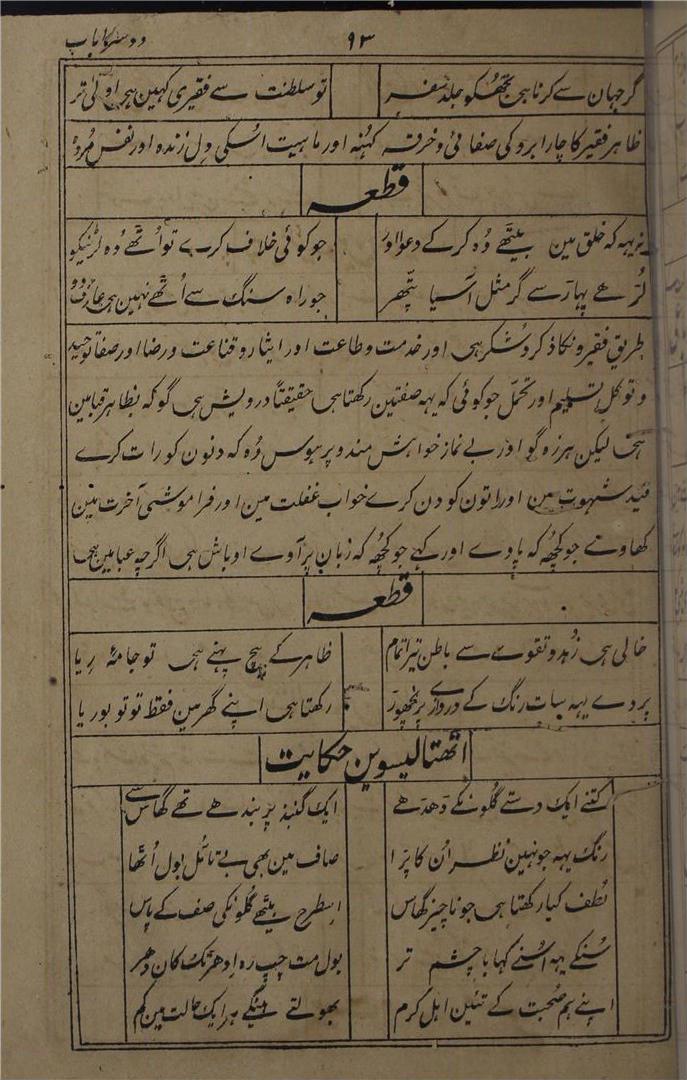 دوسرا باب
۹۳
گر جہان سے کرنا ہی تجھکو جلد سفر تو سلطنت سے فقیری کہین ہی اولیٰ تر
ظاہر فقیر کا چار ابرو کی صفائی و خرقہ کہنہ اور ماہیت اسکی دل زندہ اور نفس مردہ
قطعہ
نہ یہہ کہ خلق مین بیٹھے وہ کرکے دعوا اور جو کوئی خلاف کرے تو اٹھے وہ لڑنیکو
لڑھے پہاڑ سے گر مثل آسیا پتھر جو راہ سنگ سے اٹھے نہین ہی عارف وو
طریق فقیرونکا ذکر و شکر ہی اور خدمت و طاعت اور ایثار و قناعت و رضا اور صفا توحید
و توکل تسلیم اور تحمل جو کوئی کہ یہہ صفتین رکھتا ہی حقیقتاً درویش ہی گو کہ بظاہر قبا مین
ہی لیکن ہرزہ گو اور بے نماز خواہش مند و پر ہوس وہ کہ دنون کو رات کرے
قید شہوت مین اور راتون کو دن کرے خواب غفلت مین اور فراموشئ آخرت مین
کھاوے جو کچھہ کہ پاوے اور کہے جو کچھہ کہ زبان پر آوے اوباش ہی اگرچہ عبا مین ہی
قطعہ
خالی ہی زہد و تقوے سے باطن تیرا تمام ظاہر کے بیچ پہنے ہی تو جامۂ ریا
پردے یہہ سات رنگ کے دروازے پر نچھوڑ رکھتا ہی اپنے گھر مین فقط تو تو بوریا
اٹھتالیسوین حکایت
کتنے ایک دستے گلونکے دھدھے ایک گنبذ پر بندھے تھے گھاس سے
رنگ یہہ جونہین نظر ان کا پڑا صاف مین بھی بے تامل بول اٹھا
لطف کیا رکھتا ہی جو ناچیز گھاس اسطرح بیٹھے گلونکی صف کے پاس
سنکے یہہ اسنے کہا با چشم تر بول مت چپ رہ ادھر تک کان دھر
اپنے ہم صحبت کے تئین اہل کرم بھولتے ہینگے ہر ایک حالت مین کم